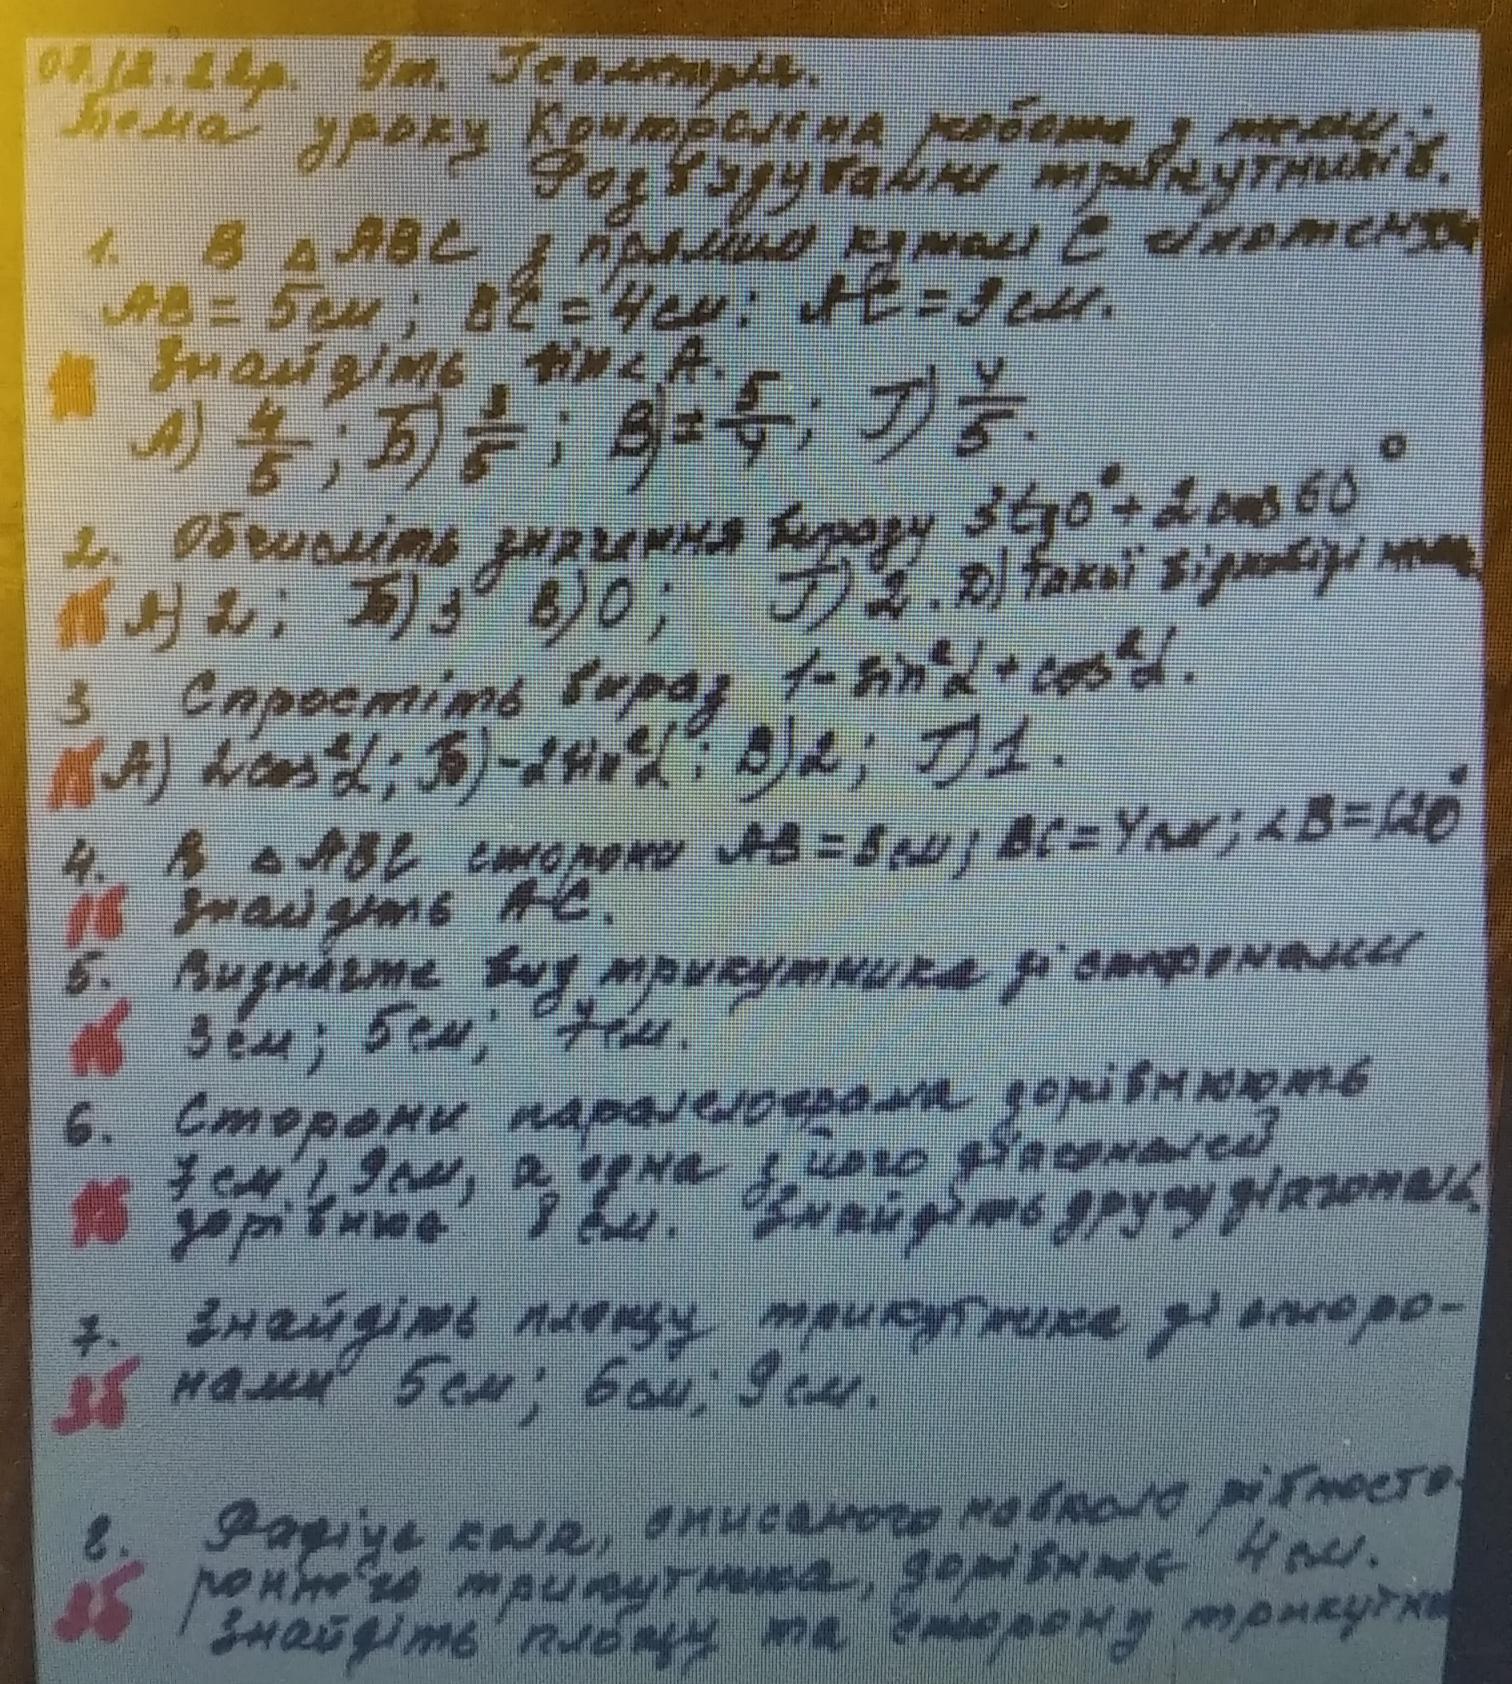 07.12.22р. 9т. Геометрія.
Тема уроку Контрольна робота з теми:
Розв'язування трикутників.
1. В △ ABC з прямим кутом C гіпотенуза
AB = 5 см; BC = 4 см; AC = 3 см.
Знайдіть sin A.
А) 4/5; Б) 3/5; В) 5/4; Г) 4/5.
2. Обчисліть значення виразу 3tg0° + 2cos60°
1б А) 2; Б) 3 В) 0; Г) 2. Д) такої відповіді нема
3 Спростіть вираз 1 - sin²α + cos²α.
1б А) 2cos²α; Б) -2sin²α; В) 2; Г) 1.
4. В △ ABC сторони AB = 8 см; BC = 4 см; ∠B = 120°
1б Знайдіть AC.
5. Визначте вид трикутника зі сторонами
1б 3 см; 5 см; 7 см.
6. Сторони паралелограма дорівнюють
7 см і 9 см, а одна з його діагоналей
дорівнює 8 см. Знайдіть другу діагональ.
7. Знайдіть площу трикутника зі сторо-
3б нами 5 см; 6 см; 9 см.
8. Радіус кола, описаного навколо рівносто-
роннього трикутника, дорівнює 4 см.
Знайдіть площу та сторону трикутни